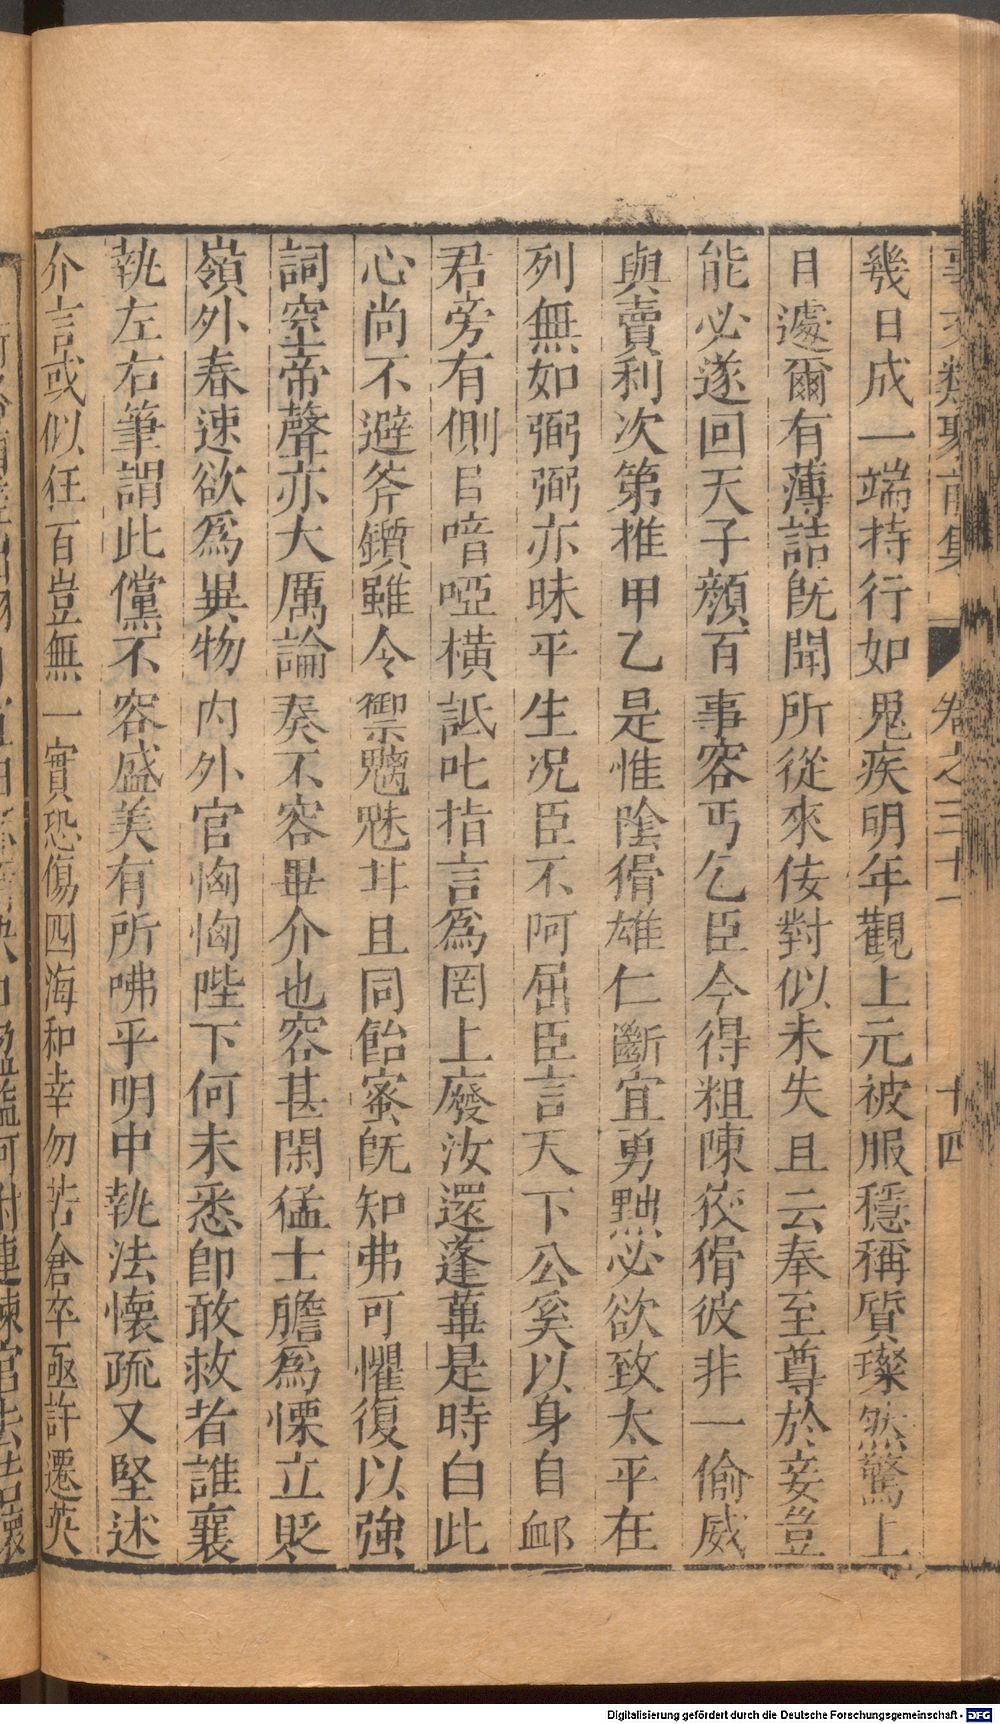 事文類聚前集 卷之三十一 十四
幾日成一端持行如鬼疾明年觀上元被服穩稱質璨然驚上
目遽爾有薄詰旣聞所從來侫對似未失且云奉至尊於妾豈
能必遂回天子顏百事容丐乞臣今得粗陳狡猾彼非一偷威
與賣利次第推甲乙是惟陰猾雄仁斷宜勇黜必欲致太平在
列無如弼弼亦昧平生况臣不阿屈臣言天下公奚以身自䘏
君旁有側目喑啞橫詆叱指言爲罔上廢汝還蓬蓽是時白此
心尚不避斧鑕雖令禦魑魅甘且同飴蜜旣知弗可懼復以強
詞窒帝聲亦大厲論奏不容畢介也容甚閑猛士膽爲慄立貶
嶺外春速欲爲異物內外官恟恟陛下何未悉卽敢救者誰襄
執左右筆謂此儻不容盛美有所咈乎明中執法懷疏又堅述
介言或似狂百豈無一實恐傷四海和幸勿苦倉卒亟許遷英
Digitalisierung gefördert durch die Deutsche Forschungsgemeinschaft - DFG